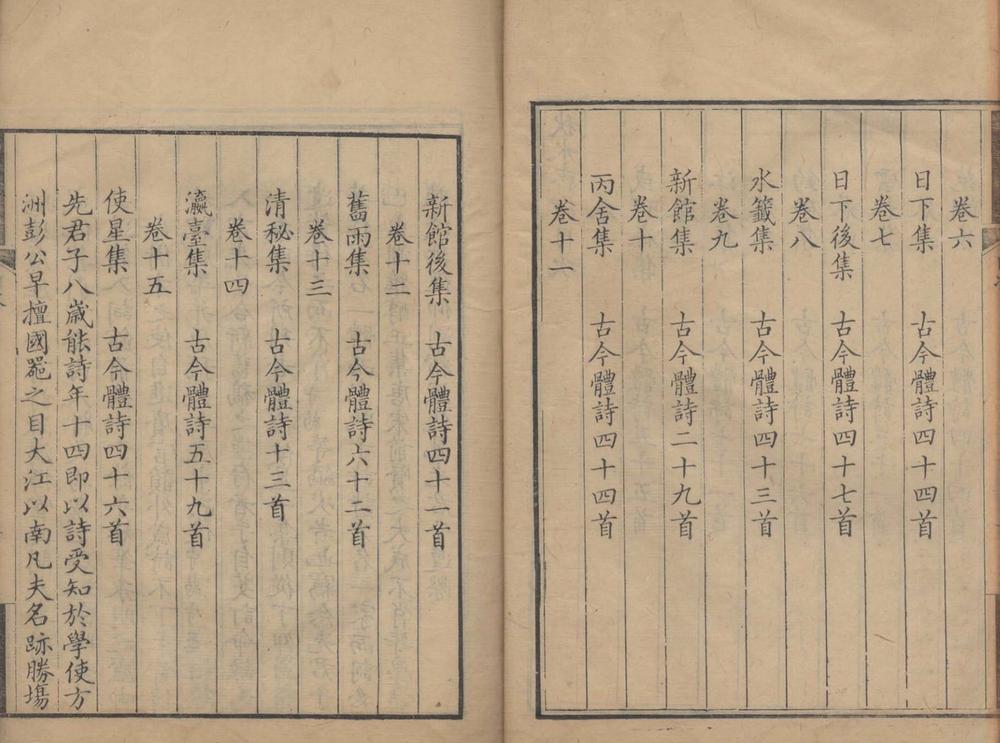 卷六
日下集 古今體詩四十四首
卷七
日下後集 古今體詩四十七首
卷八
水籤集 古今體詩四十三首
卷九
新館集 古今體詩二十九首
卷十
丙舍集 古今體詩四十四首
卷十一
新館後集 古今體詩四十一首
卷十二
舊雨集 古今體詩六十二首
卷十三
清秘集 古今體詩十三首
卷十四
瀛臺集 古今體詩五十九首
卷十五
使星集 古今體詩四十六首
先君子八歲能詩年十四即以詩受知於學使方
洲彭公早擅國器之目大江以南凡夫名跡勝塲